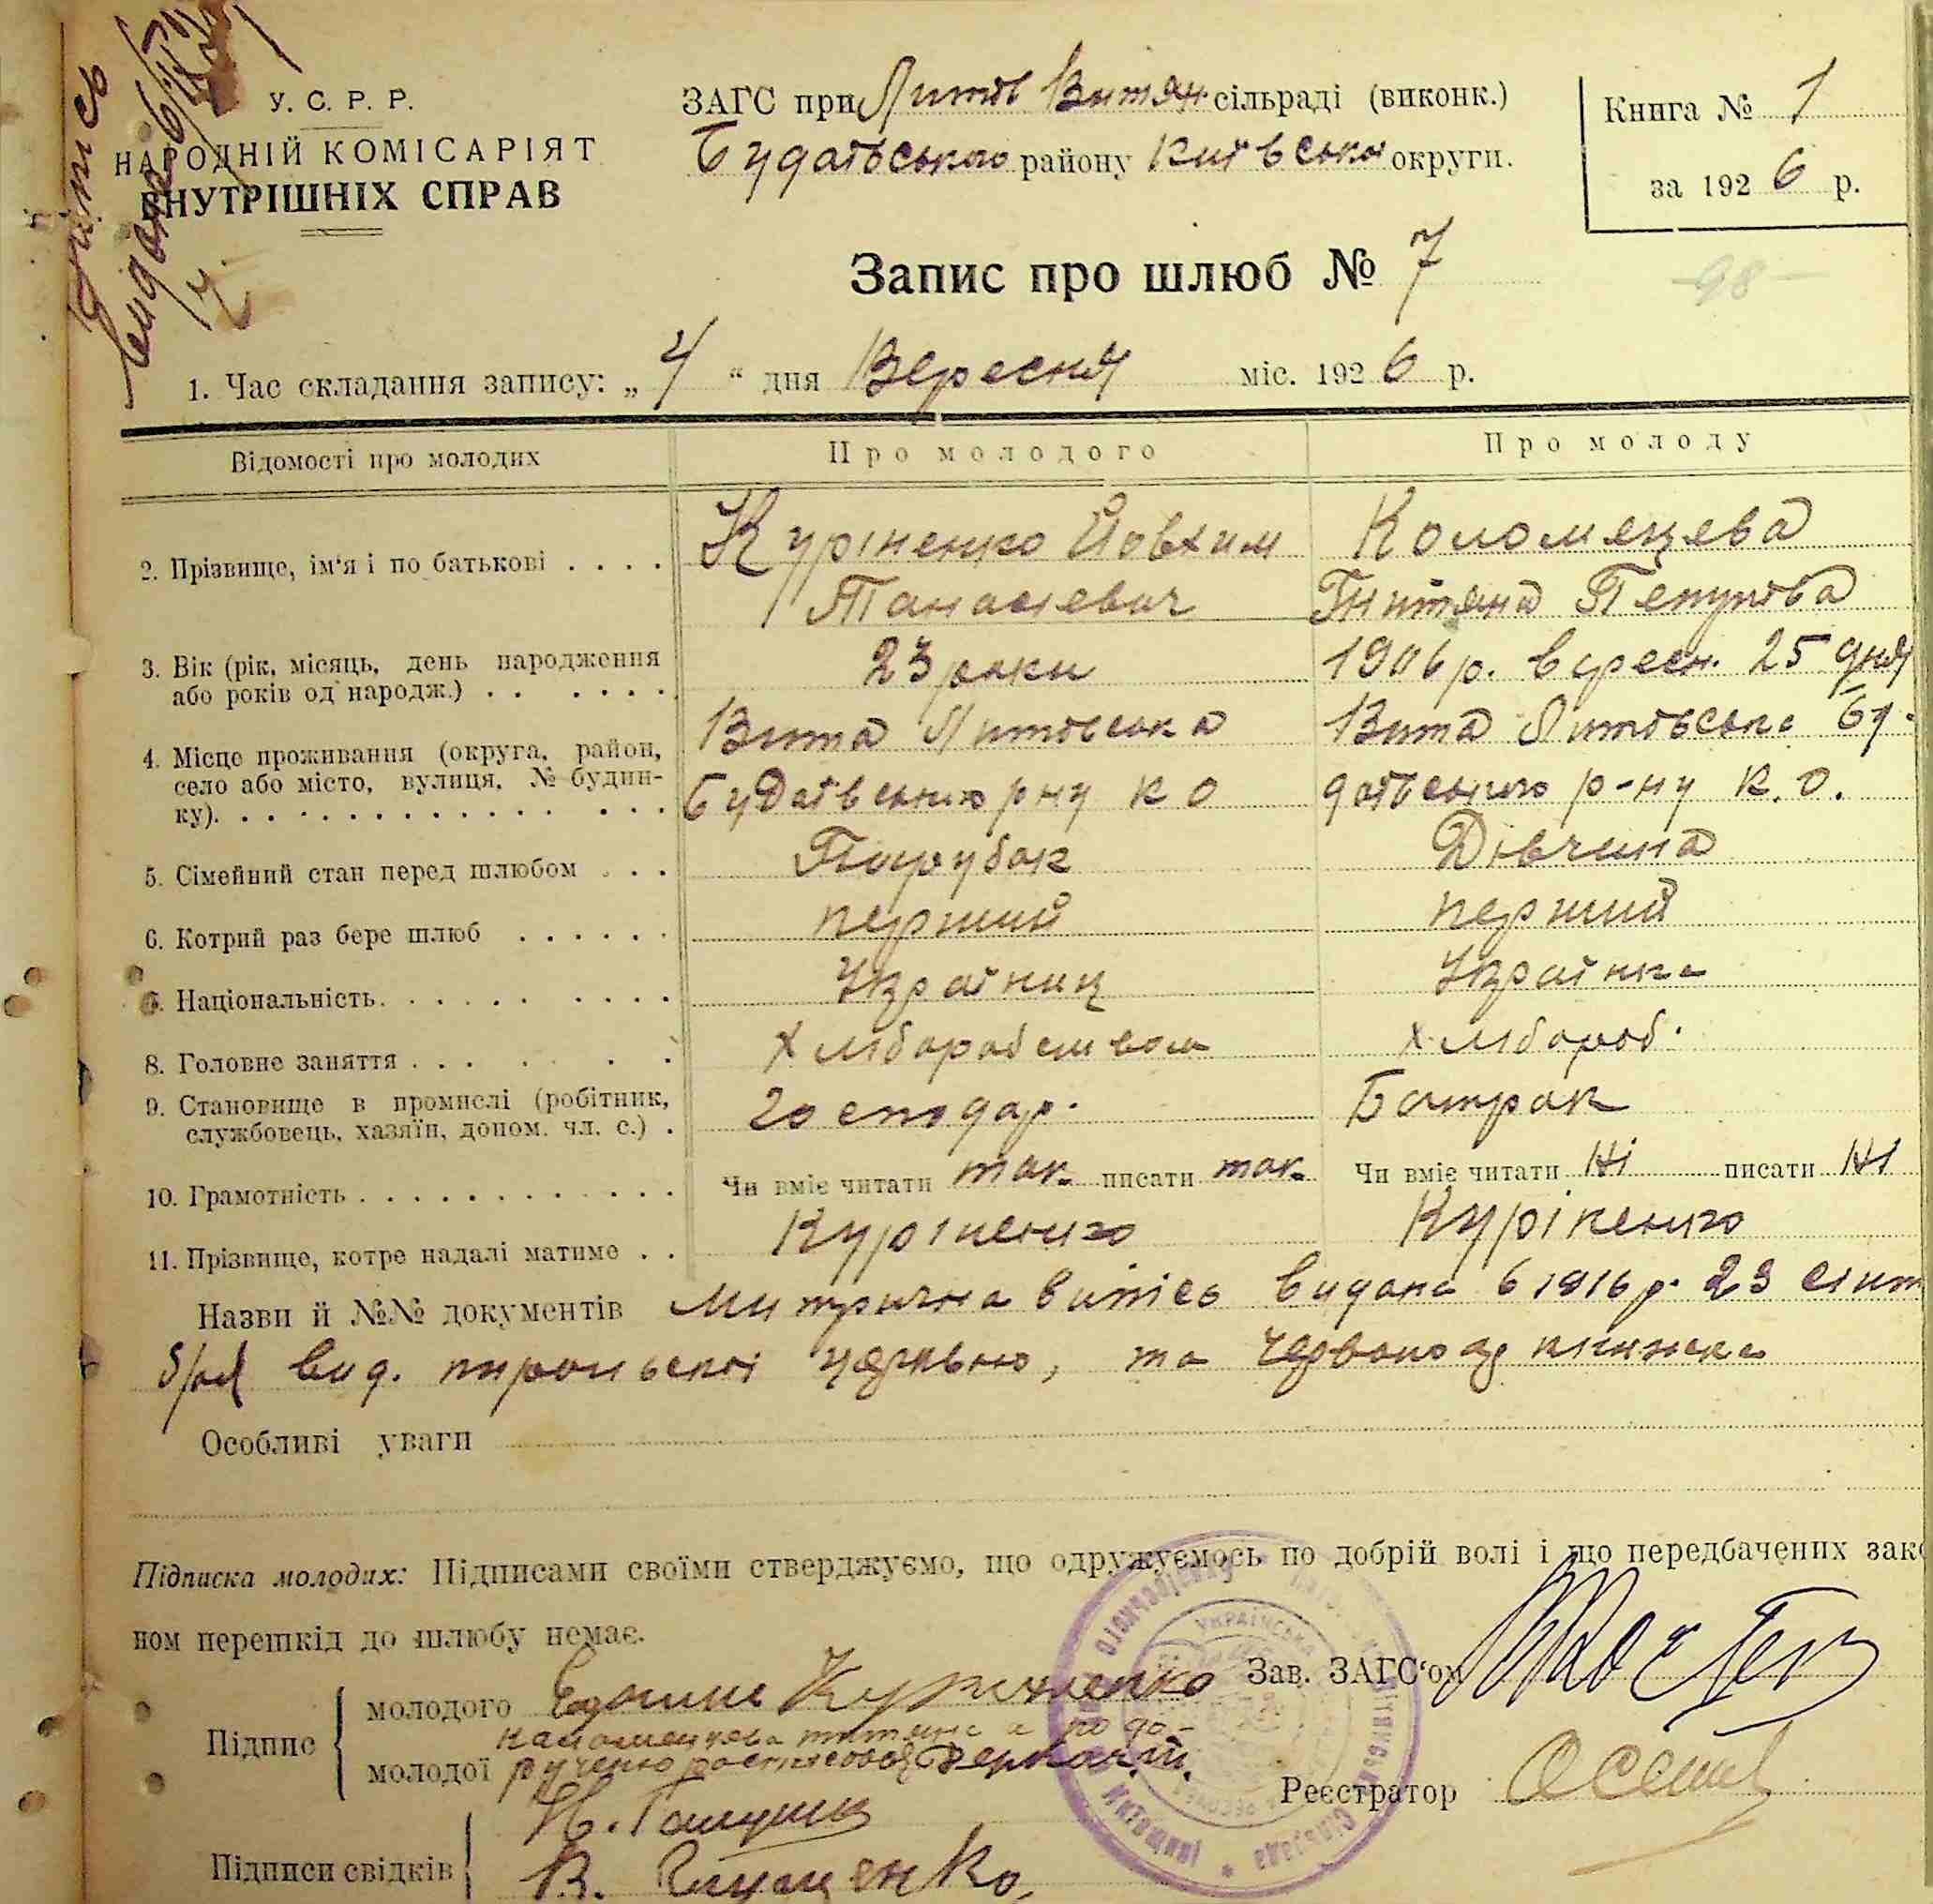 У. С. Р. Р.
НАРОДНІЙ КОМІСАРІЯТ
ВНУТРІШНІХ СПРАВ
ЗАГС при Литов Витян. сільраді (виконк.)
Будаївського району Київської округи.
Книга № 1
за 1926 р.
Запис про шлюб № 7
98
1. Час складання запису: „4“ дня Вересня міс. 1926 р.
Відомості про молодих
Про молодого
Про молоду
2. Прізвище, ім'я і по батькові . . . .
Куріненко Йовхим
Танасиевич
Коломецева
Титяна
3. Вік (рік, місяць, день народження
або років од народж.) . . . . . .
23 роки
1906 р. вересн. 25 дня
4. Місце проживання (округа, район,
село або місто, вулиця, № будин-
ку). . . . . . . . . . . . . . .
Вита Литовська
Будаївського рну К О
Вита Литовська Бу-
даївського р-ну К. О.
5. Сімейний стан перед шлюбом . . .
Парубок
Дівчина
6. Котрий раз бере шлюб . . . . . .
перший
перший
7. Національність. . . . . . . . . .
Українец
Українка
8. Головне заняття . . . . . .
Хліборобством
Хлібороб.
9. Становище в промислі (робітник,
службовець, хазяїн, допом. чл. с.) .
господар.
Батрак
10. Грамотність . . . . . . . . . . . .
Чи вміє читати так. писати так.
Чи вміє читати Ні писати Ні
11. Прізвище, котре надалі матиме . .
Куріненко
Куріненко
Назви й №№ документів Митрична випісь видана в 1916 р. 23
вид. церквою, та книжка
Особливі уваги
Підписка молодих: Підписами своїми стверджуємо, що одружуємось по добрій волі і що передбачених зако
ном перешкід до шлюбу немає.
Підпис
молодого Куриненко
молодої
Зав. ЗАГС'ом
Реєстратор
Підписи свідків
УКРАЇНСЬКА